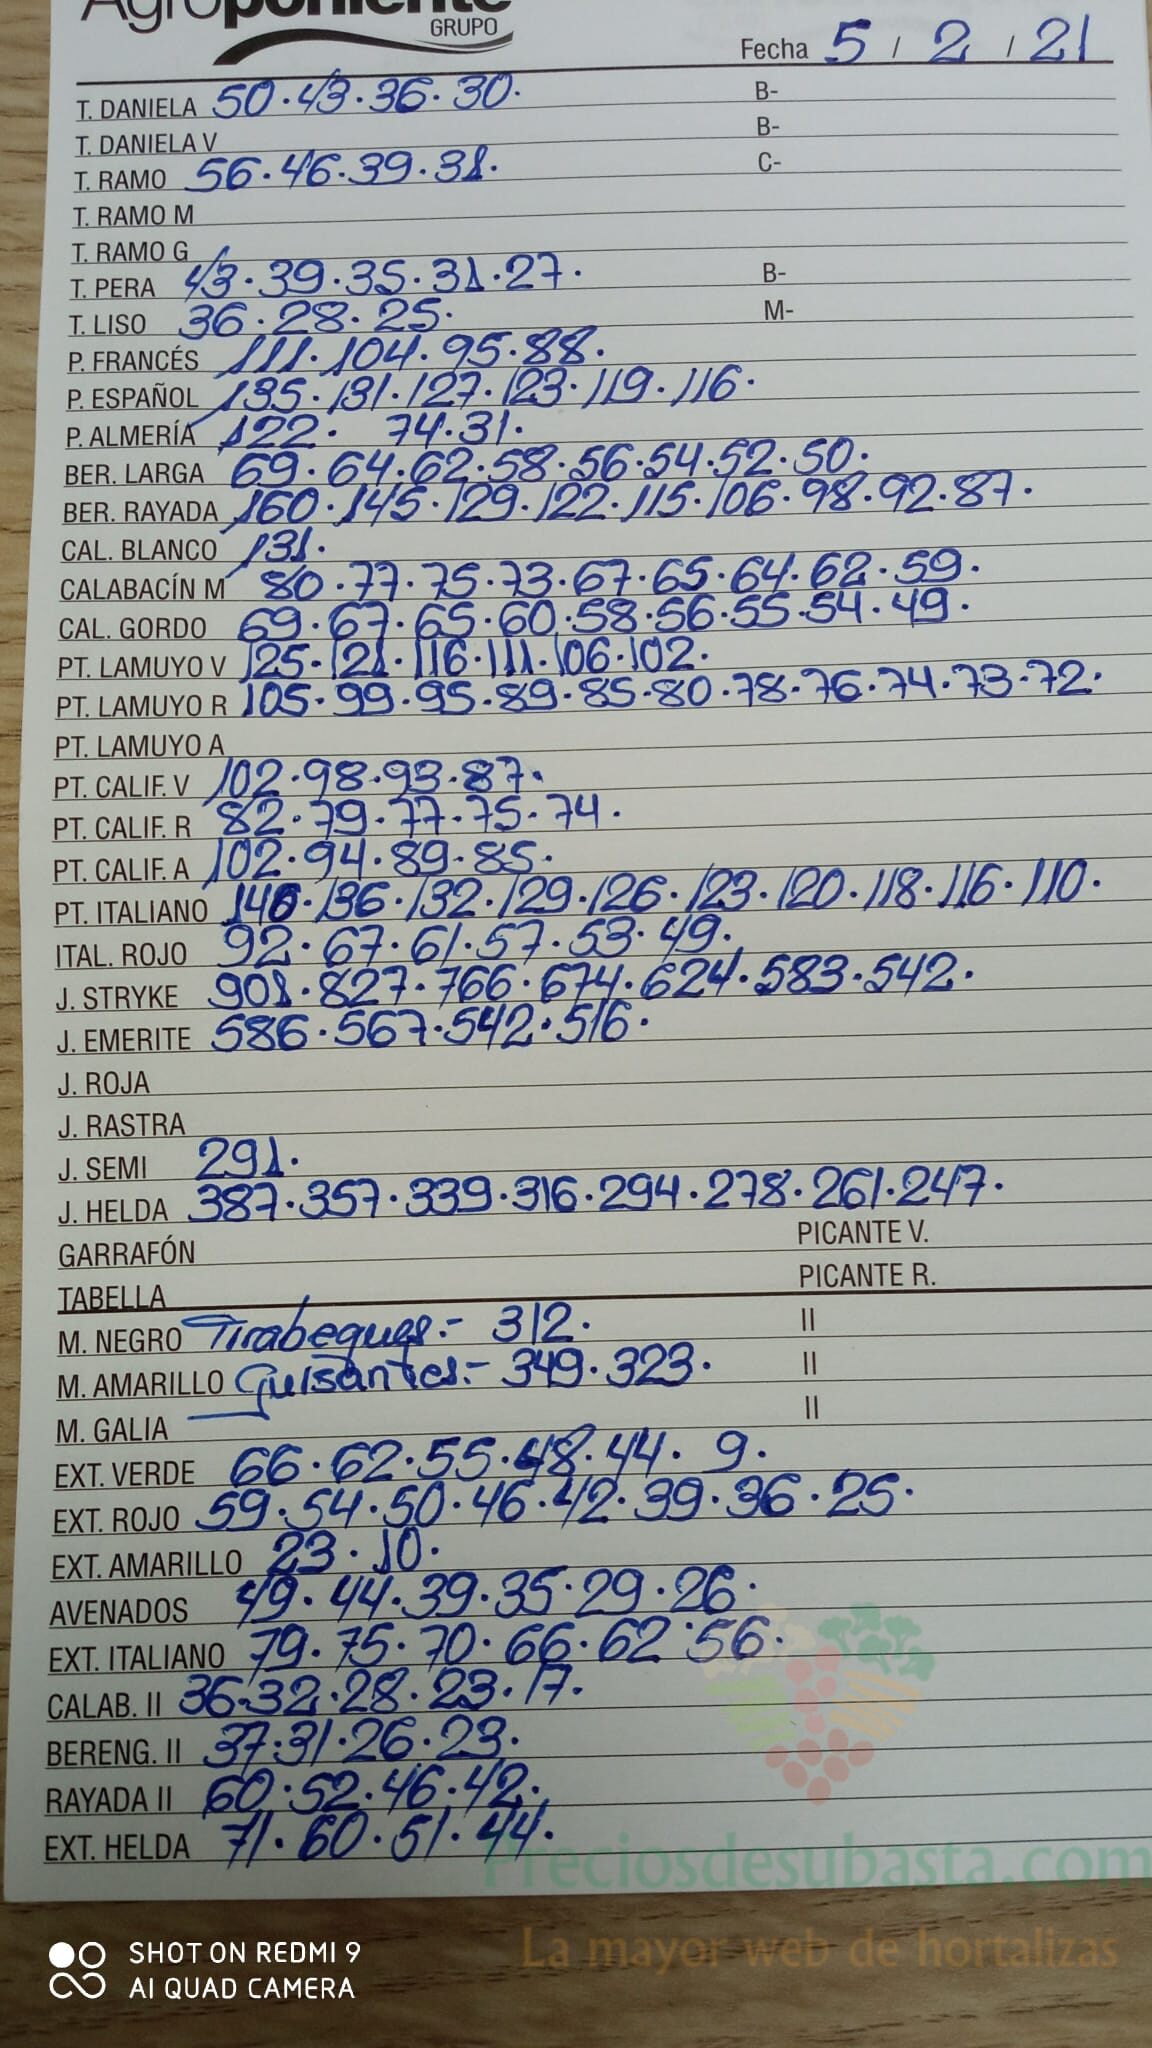 Agroponiente
GRUPO
Fecha 5 / 2 / 21
T. DANELA 50·43·36·30· B-
T. DANIELA V B-
T. RAMO 56·46·39·31· C-
T. RAMO M
T. RAMO G
T. PERA 43·39·35·31·27· B-
T. LISO 36·28·25· M-
P. FRANCÉS 111·104·95·88·
P. ESPAÑOL 135·131·127·123·119·116·
P. ALMERÍA 122· 74·31·
BER. LARGA 69·64·62·58·56·54·52·50·
BER. RAYADA 160·145·129·122·115·106·98·92·87·
CAL. BLANCO 131·
CALABACÍN M 80·77·75·73·67·65·64·62·59·
CAL. GORDO 69·67·65·60·58·56·55·54·49·
PT. LAMUYO V 125·121·116·111·106·102·
PT. LAMUYO R 105·99·95·89·85·80·78·76·74·73·72·
PT. LAMUYO A
PT. CALIF. V 102·98·93·87·
PT. CALIF. R 82·79·77·75·74·
PT. CALIF. A 102·94·89·85·
PT. ITALIANO 140·136·132·129·126·123·120·118·116·110·
ITAL. ROJO 92·67·61·57·53·49·
J. STRYKE 901·827·766·674·624·583·542·
J. EMERITE 586·567·542·516·
J. ROJA
J. RASTRA
J. SEMI 291·
J. HELDA 387·357·339·316·294·278·261·247·
GARRAFÓN PICANTE V.
TABELLA PICANTE R.
M. NEGRO Tirabeques:- 312· II
M. AMARILLO Guisantes:- 349·323· II
M. GALIA II
EXT. VERDE 66·62·55·48·44· 9·
EXT. ROJO 59·54·50·46·42·39·36·25·
EXT. AMARILLO 23·10·
AVENADOS 49·44·39·35·29·26·
EXT. ITALIANO 79·75·70·66·62·56·
CALAB. II 36·32·28·23·17·
BERENG. II 37·31·26·23·
RAYADA II 60·52·46·42·
EXT. HELDA 71·60·51·44·
Preciosdesubasta.com
La mayor web de hortalizas
SHOT ON REDMI 9
AI QUAD CAMERA